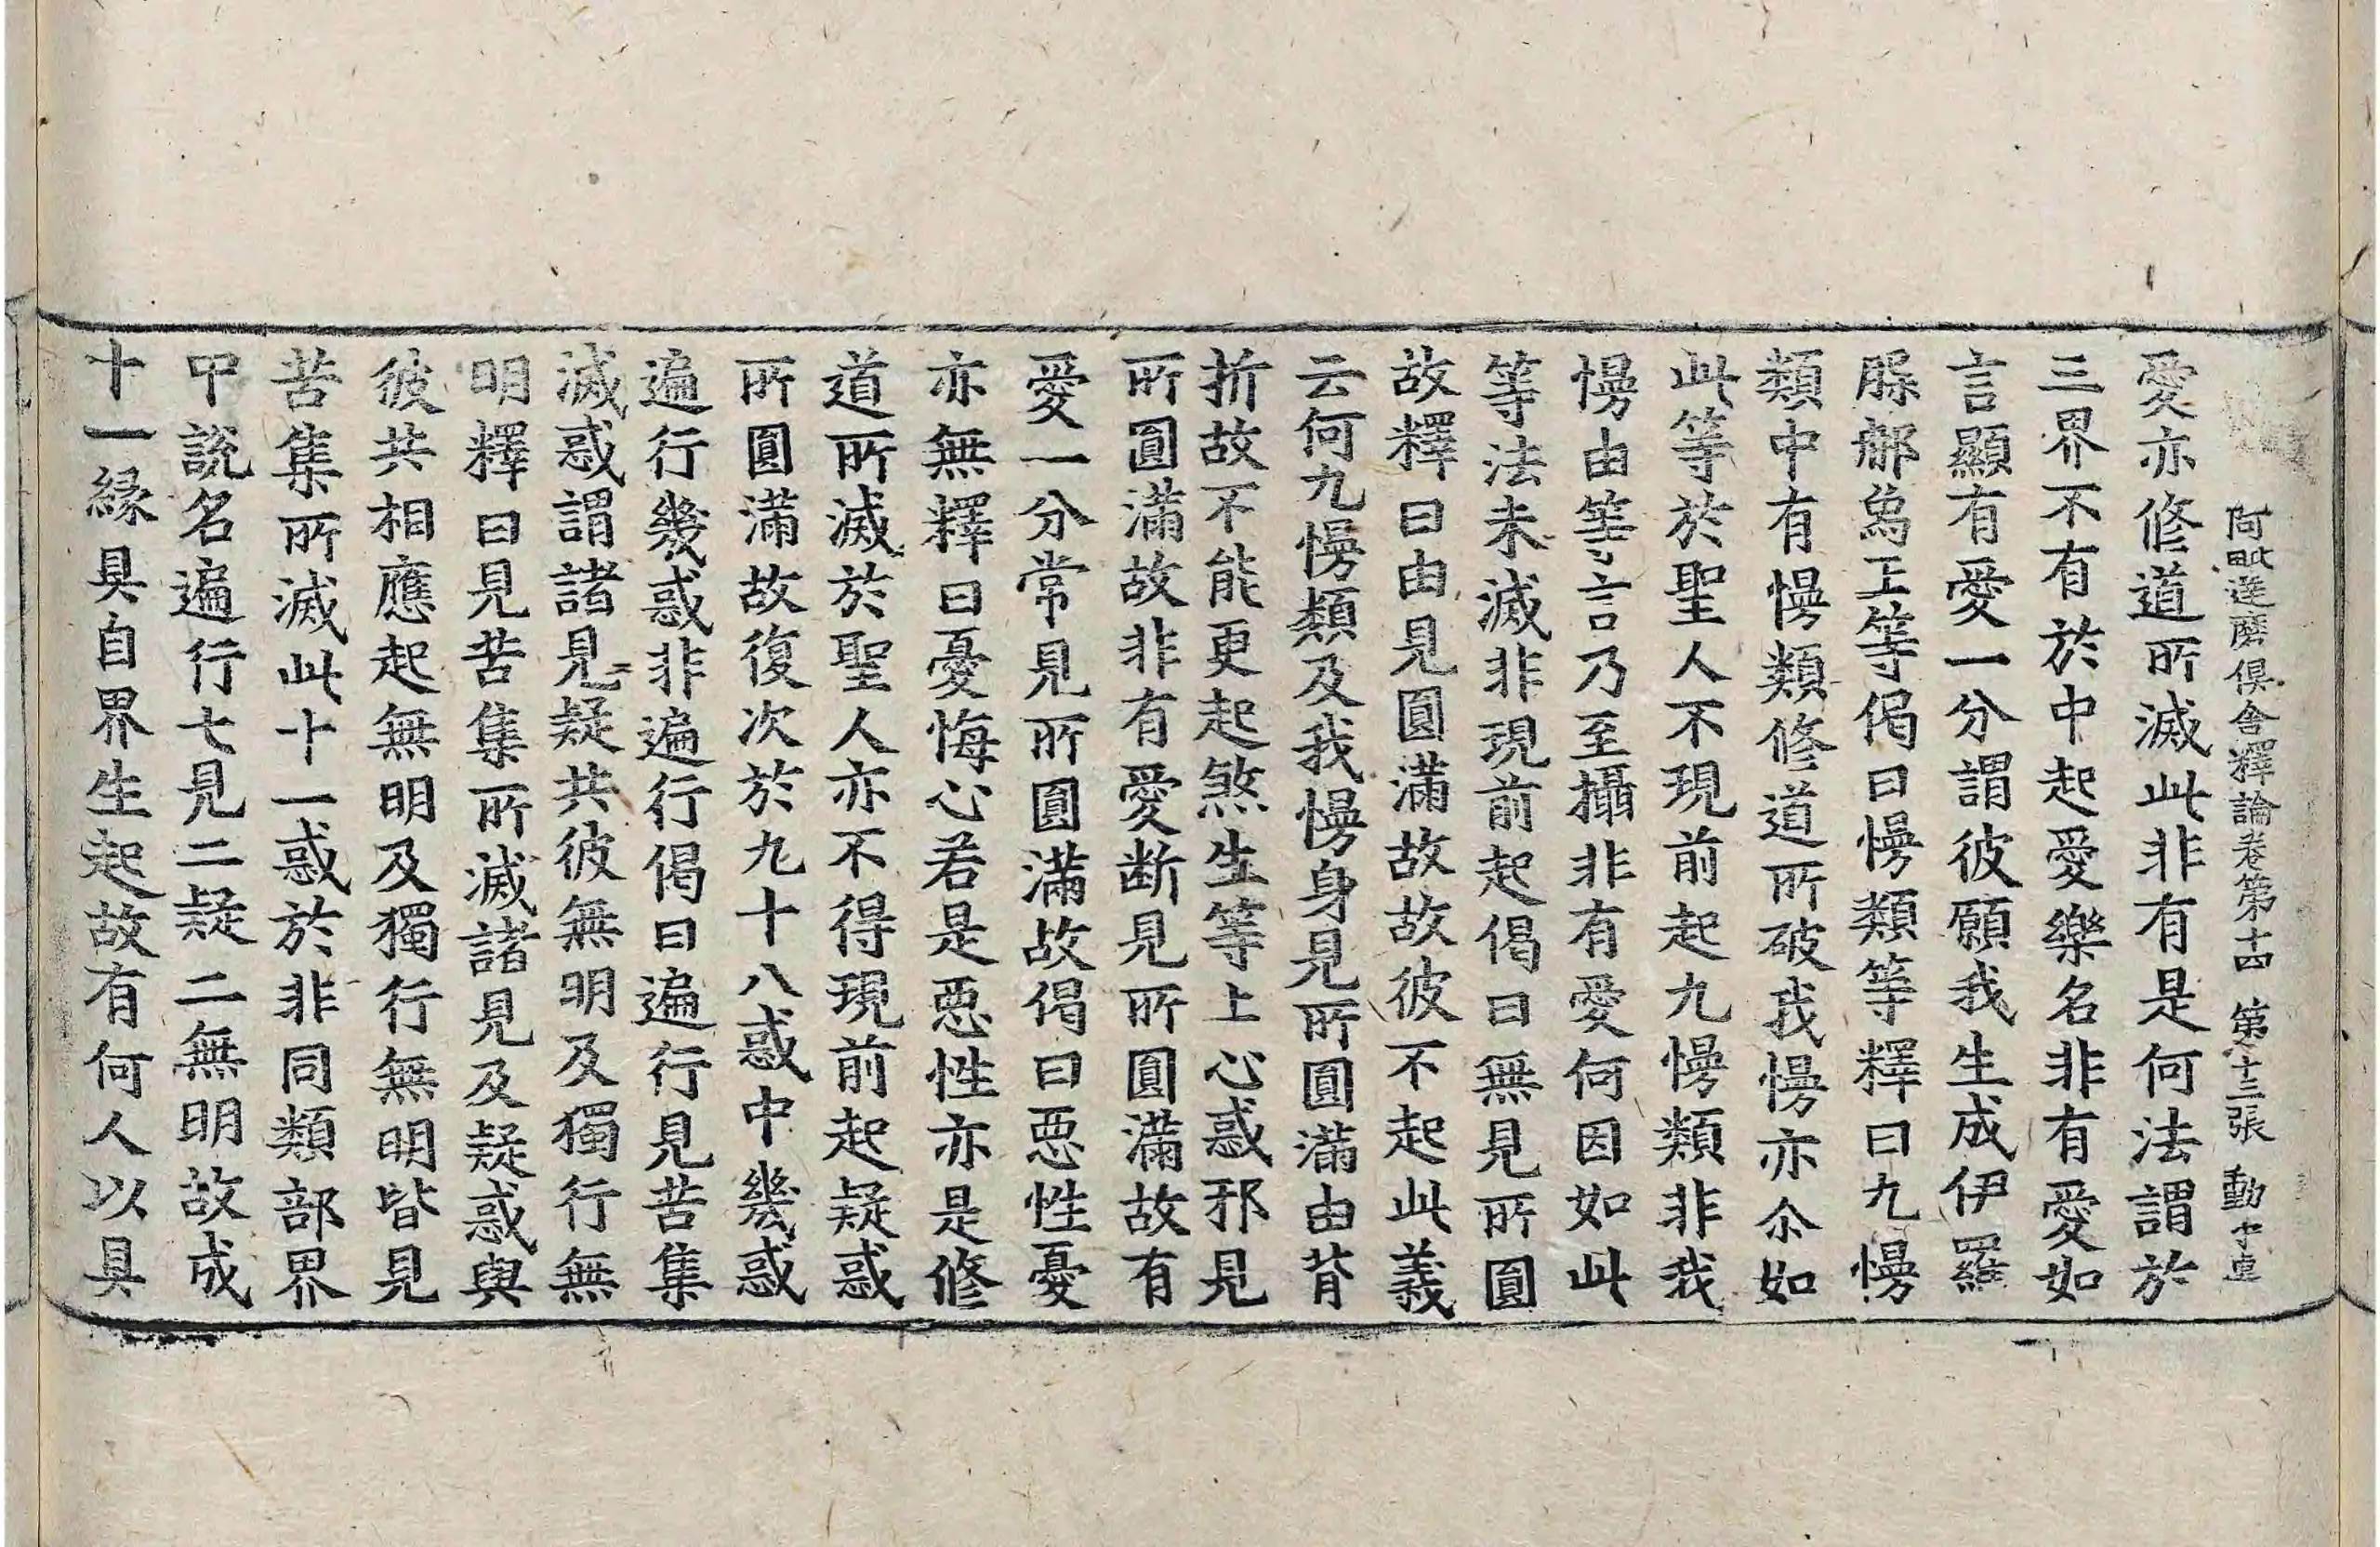 阿毗達磨俱舍釋論卷第十四 第十三張 動字号
愛亦修道所滅此非有是何法謂於
三界不有於中起愛樂名非有愛如
言顯有愛一分謂彼願我生成伊羅
䐜那爲王等偈曰慢類等釋曰九慢
類中有慢類修道所破我慢亦尒如
此等於聖人不現前起九慢類非我
慢由等言乃至攝非有愛何因如此
等法未滅非現前起偈曰無見所圓
故釋曰由見圓滿故故彼不起此義
云何九慢類及我慢身見所圓滿由背
折故不能更起煞生等上心惑邪見
所圓滿故非有愛断見所圓滿故有
愛一分常見所圓滿故偈曰惡性憂
亦無釋曰憂悔心若是惡性亦是修
道所滅於聖人亦不得現前起疑惑
所圓滿故復次於九十八惑中幾惑
遍行幾惑非遍行偈曰遍行見苦集
滅惑謂諸見疑共彼無明及獨行無
明釋曰見苦集所滅諸見及疑惑與
彼共相應起無明及獨行無明皆見
苦集所滅此十一惑於非同類部界
中說名遍行七見二疑二無明故成
十一緣具自界生起故有何人以具